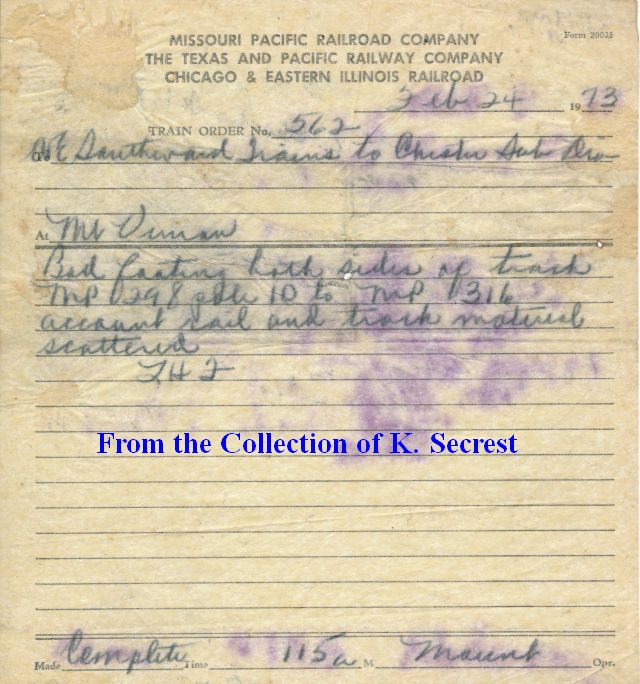 Form 20035
MISSOURI PACIFIC RAILROAD COMPANY
THE TEXAS AND PACIFIC RAILWAY COMPANY
CHICAGO & EASTERN ILLINOIS RAILROAD
Feb 24 1973
TRAIN ORDER No. 562
To Southward Trains to Chester Sub Div
At Mt Vernon
Bad footing both sides of track
MP 298 pole 10 to MP 316
account rail and track material
scattered
From the Collection of K. Secrest
Made Complete Time 115a M Mount Opr.